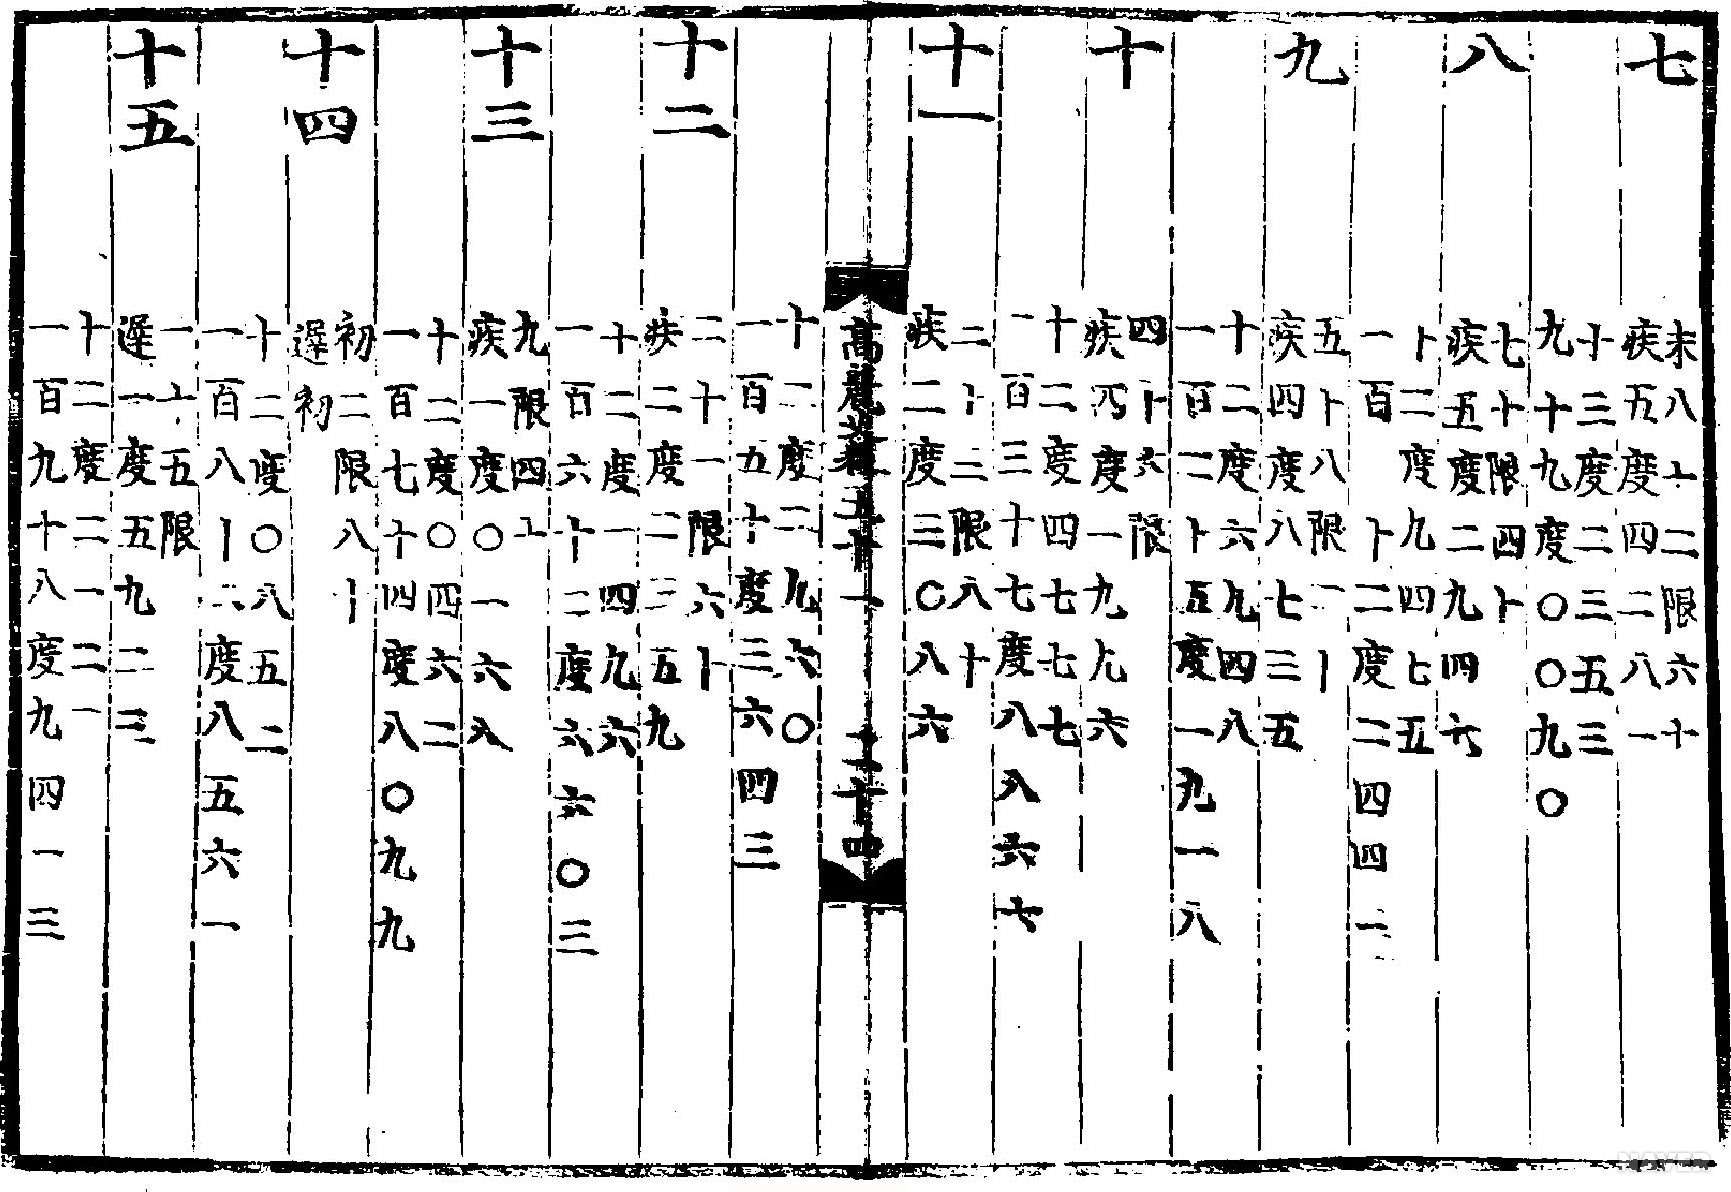 七
末八十二限六十
疾五度四二八一
十三度二三五三
九十九度〇〇九〇
八
七十限四十
疾五度二九四六
十二度九四七五
一百一十二度二四四三
九
五十八限二十
疾四度八七三五
十二度六九四八
一百二十五度一九一八
十
四十六限
疾四度一九九六
十二度四七七七
一百三十七度八八六六
十一
三十三限八十
疾三度三〇八六
高麗 五十一
二十四
十二度二九六〇
一百五十度三六四三
十二
二十一限六十
疾二度二三五九
十二度一四九六
一百六十二度六六〇三
十三
九限四十
疾一度〇一六八
十二度〇四六二
一百七十四度八〇九九
十四
初二限八十
遲初
十二度〇八五二
一百八十六度八五六一
十五
一十五限
遲一度五九二三
十二度二一二一
一百九十八度九四一三
NAVER